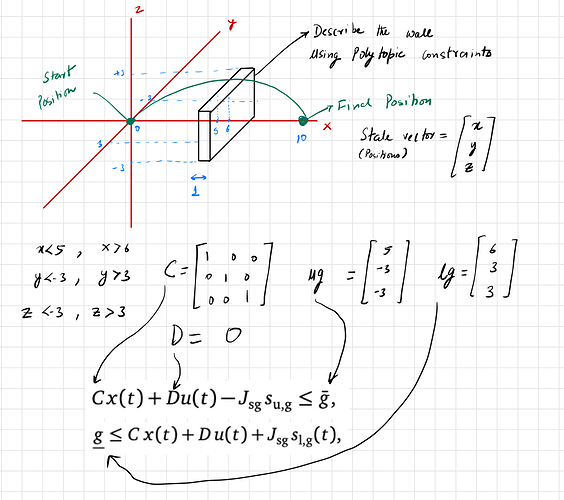 z
y
Describe the wall
using Polytopic constraints
Start
Position
+3
-3
Final Position
0
5 6
10
x
3
-3
1
State vector = [x y z]
(Positions)
x<5 , x>6
y<-3 , y>3
z<-3 , z>3
C = [1 0 0
0 1 0
0 0 1]
ug = [5 -3 -3]
lg = [6 3 3]
D = 0
Cx(t) + Du(t) − J_sg s_u,g ≤ ḡ,
g̲ ≤ Cx(t) + Du(t) + J_sg s_l,g(t),